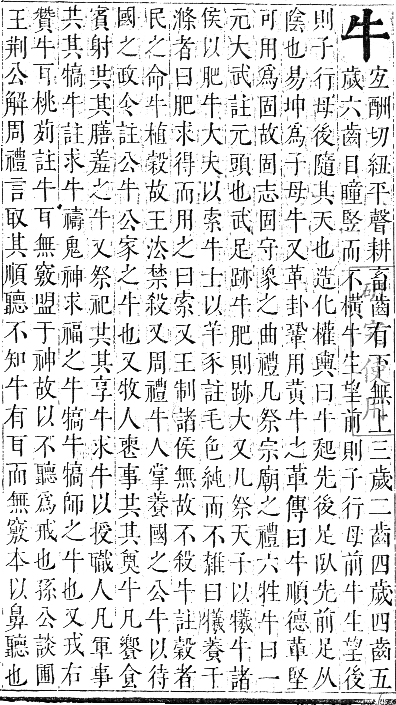 牛
宐酬切紐平聲耕畜齒有下無上三歲二齒四歲四齒五
歲六齒目瞳竪而不橫牛生望前則子行母前牛生望後
則子行母後隨其天也造化權輿曰牛起先後足臥先前足从
陰也易坤爲子母牛又革卦鞏用黃牛之革傳曰牛順德革堅
可用爲固故固志固守象之曲禮凡祭宗廟之禮六牲牛曰一
元大武註元頭也武足跡牛肥則跡大又凡祭天子以犧牛諸
侯以肥牛大夫以索牛士以羊豕註毛色純而不雜曰犧養于
滌者曰肥求得而用之曰索又王制諸侯無故不殺牛註穀者
民之命牛植穀故王法禁殺又周禮牛人掌養國之公牛以待
國之政令註公牛公家之牛也又牧人喪事共其奠牛凡饗食
賓射共其膳羞之牛又祭祀共其享牛求牛以授職人凡軍事
共其犒牛註求牛禱鬼神求福之牛犒牛犒師之牛也又戎右
贊牛耳桃茢註牛耳無竅盟于神故以不聽爲戒也孫公談圃
王荆公解周禮言取其順聽不知牛有耳而無竅本以鼻聽也